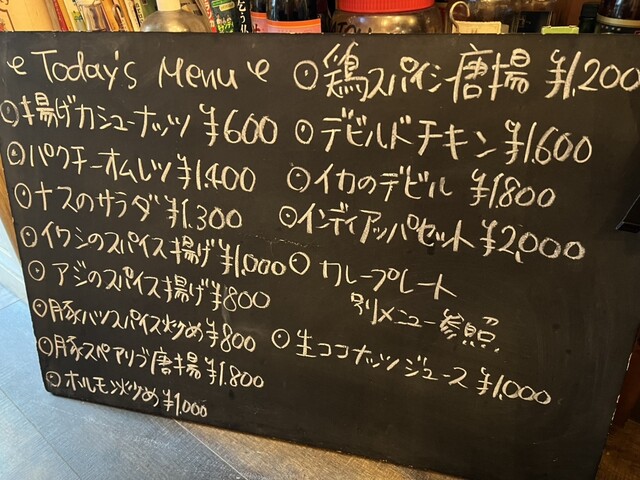 Today's Menu
揚げカシューナッツ ¥600
パクチーオムレツ ¥1.400
ナスのサラダ ¥1.300
イワシのスパイス揚げ ¥1,000
アジのスパイス揚げ ¥800
豚ハツスパイス炒め ¥800
豚スペアリブ唐揚 ¥1.800
ホルモン炒め ¥1,000
鶏スパイシー唐揚 ¥1,200
デビルドチキン ¥1.600
イカのデビル ¥1.800
インディアッパセット ¥2,000
カレープレート
別メニュー参照.
生ココナッツジュース ¥1,000